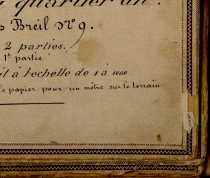 quartier du
Breil Nº 9.
2 parties.
1e partie
à l'échelle de 1 a 1000
papier pour un mètre sur le terrain